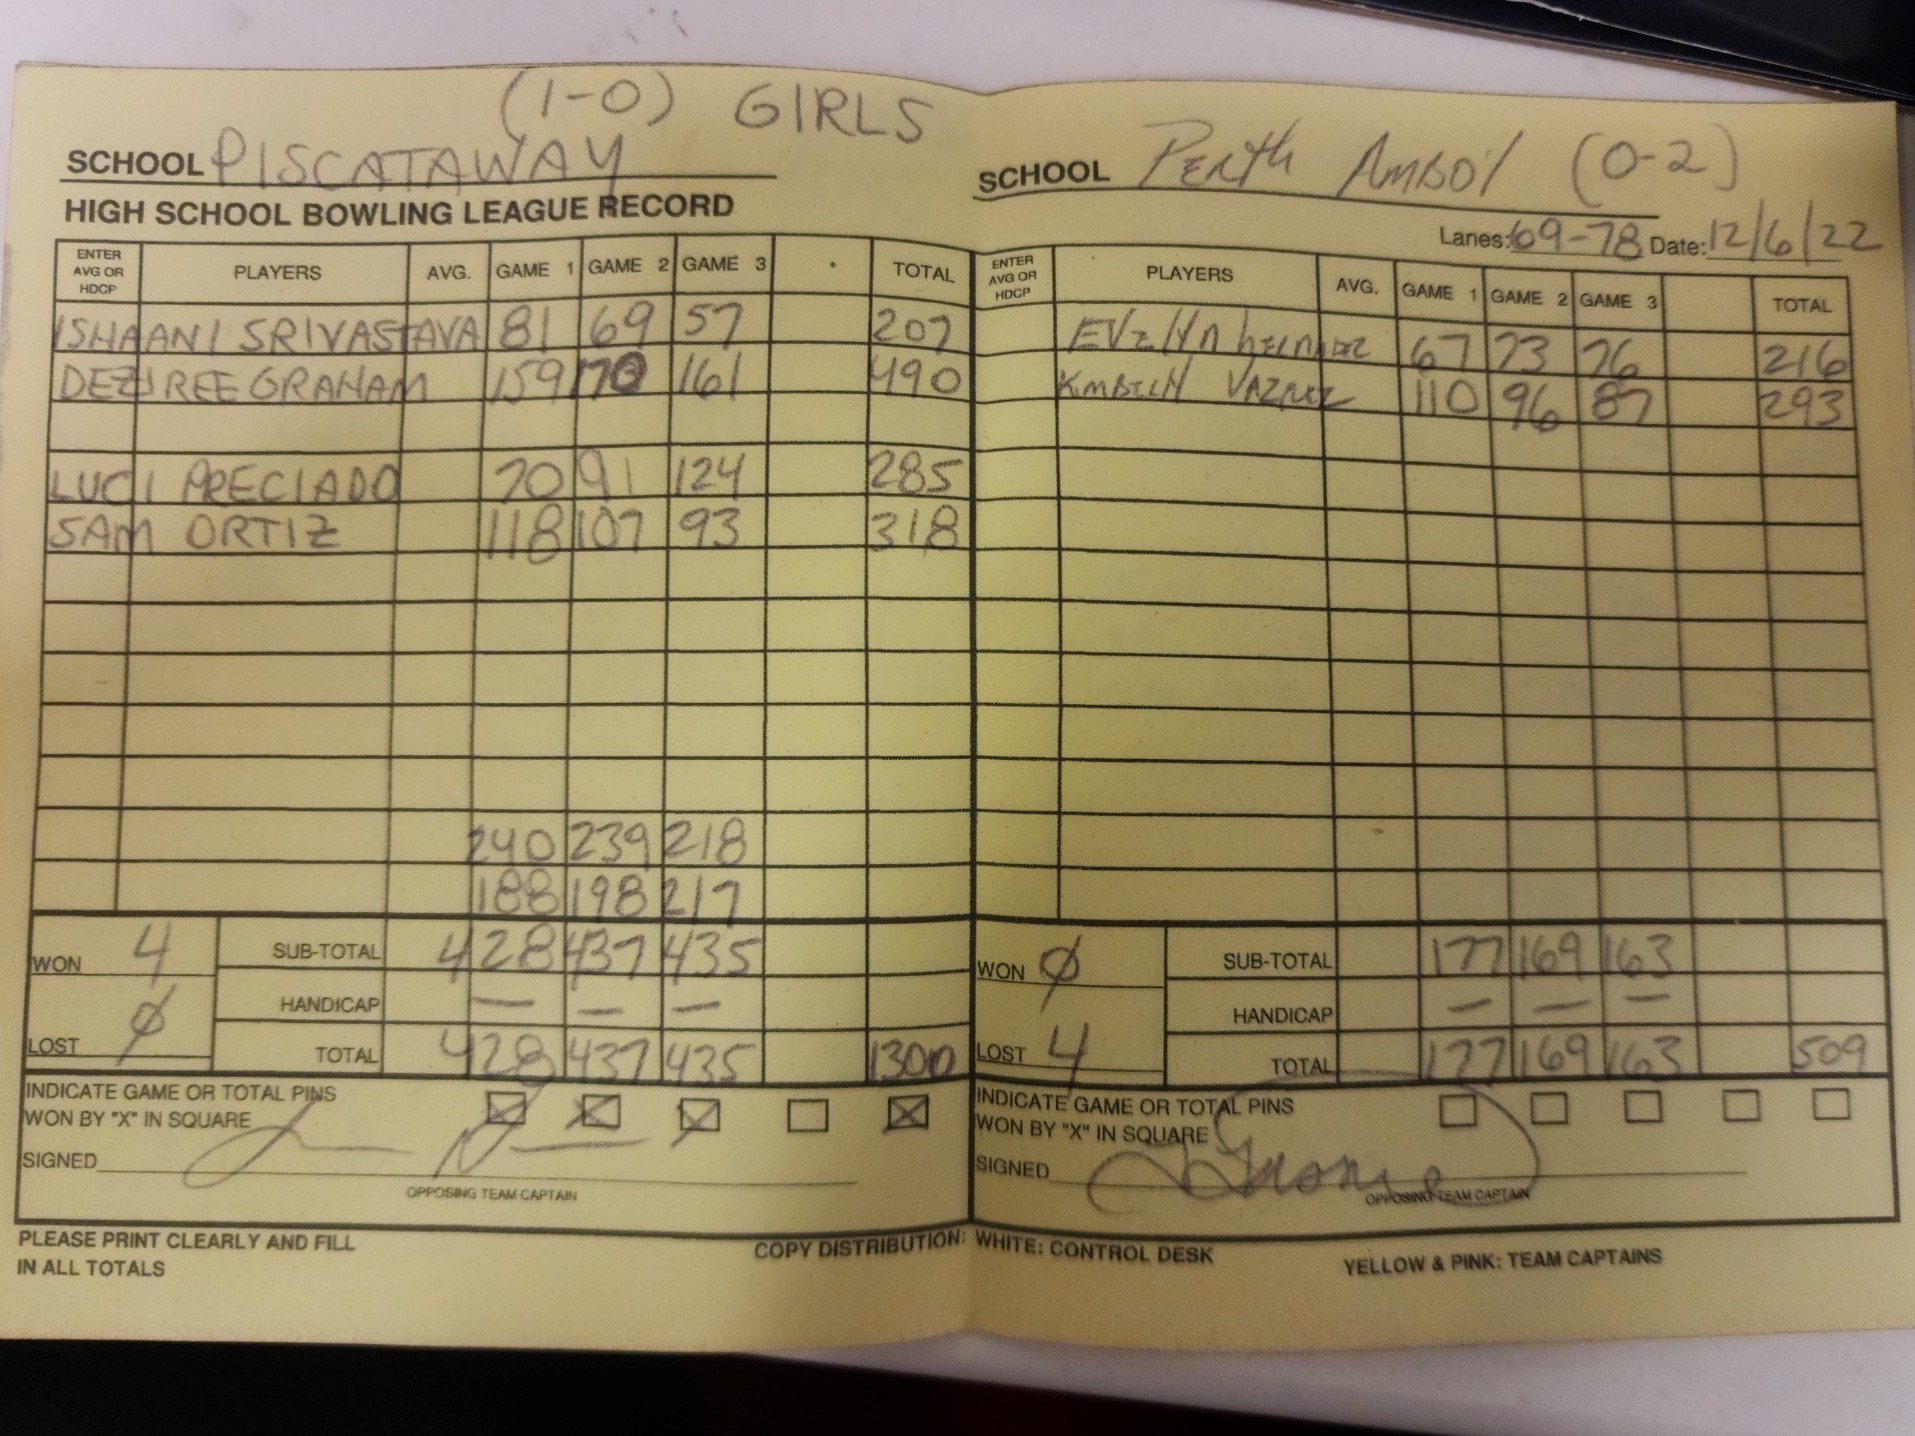 (1-0) GIRLS
SCHOOL PISCATAWAY
HIGH SCHOOL BOWLING LEAGUE RECORD
ENTER AVG OR HDCP PLAYERS AVG. GAME 1 GAME 2 GAME 3 TOTAL
ISHAANI SRIVASTAVA 81 69 57 207
DEZIREE GRAHAM 159 170 161 490
LUCI PRECIADO 70 91 124 285
SAM ORTIZ 118 107 93 318
240 239 218
188 198 217
WON 4 SUB-TOTAL 428 437 435
HANDICAP — — —
LOST Ø TOTAL 428 437 435 1300
INDICATE GAME OR TOTAL PINS
WON BY "X" IN SQUARE X X X X
SIGNED
OPPOSING TEAM CAPTAIN
PLEASE PRINT CLEARLY AND FILL
IN ALL TOTALS
SCHOOL Perth Amboy (0-2)
Lanes: 69-78 Date: 12/6/22
ENTER AVG OR HDCP PLAYERS AVG. GAME 1 GAME 2 GAME 3 TOTAL
EVElyn 67 73 76 216
110 96 87 293
WON Ø SUB-TOTAL 177 169 163
HANDICAP — — —
LOST 4 TOTAL 177 169 163 509
INDICATE GAME OR TOTAL PINS
WON BY "X" IN SQUARE
SIGNED
OPPOSING TEAM CAPTAIN
COPY DISTRIBUTION: WHITE: CONTROL DESK YELLOW & PINK: TEAM CAPTAINS